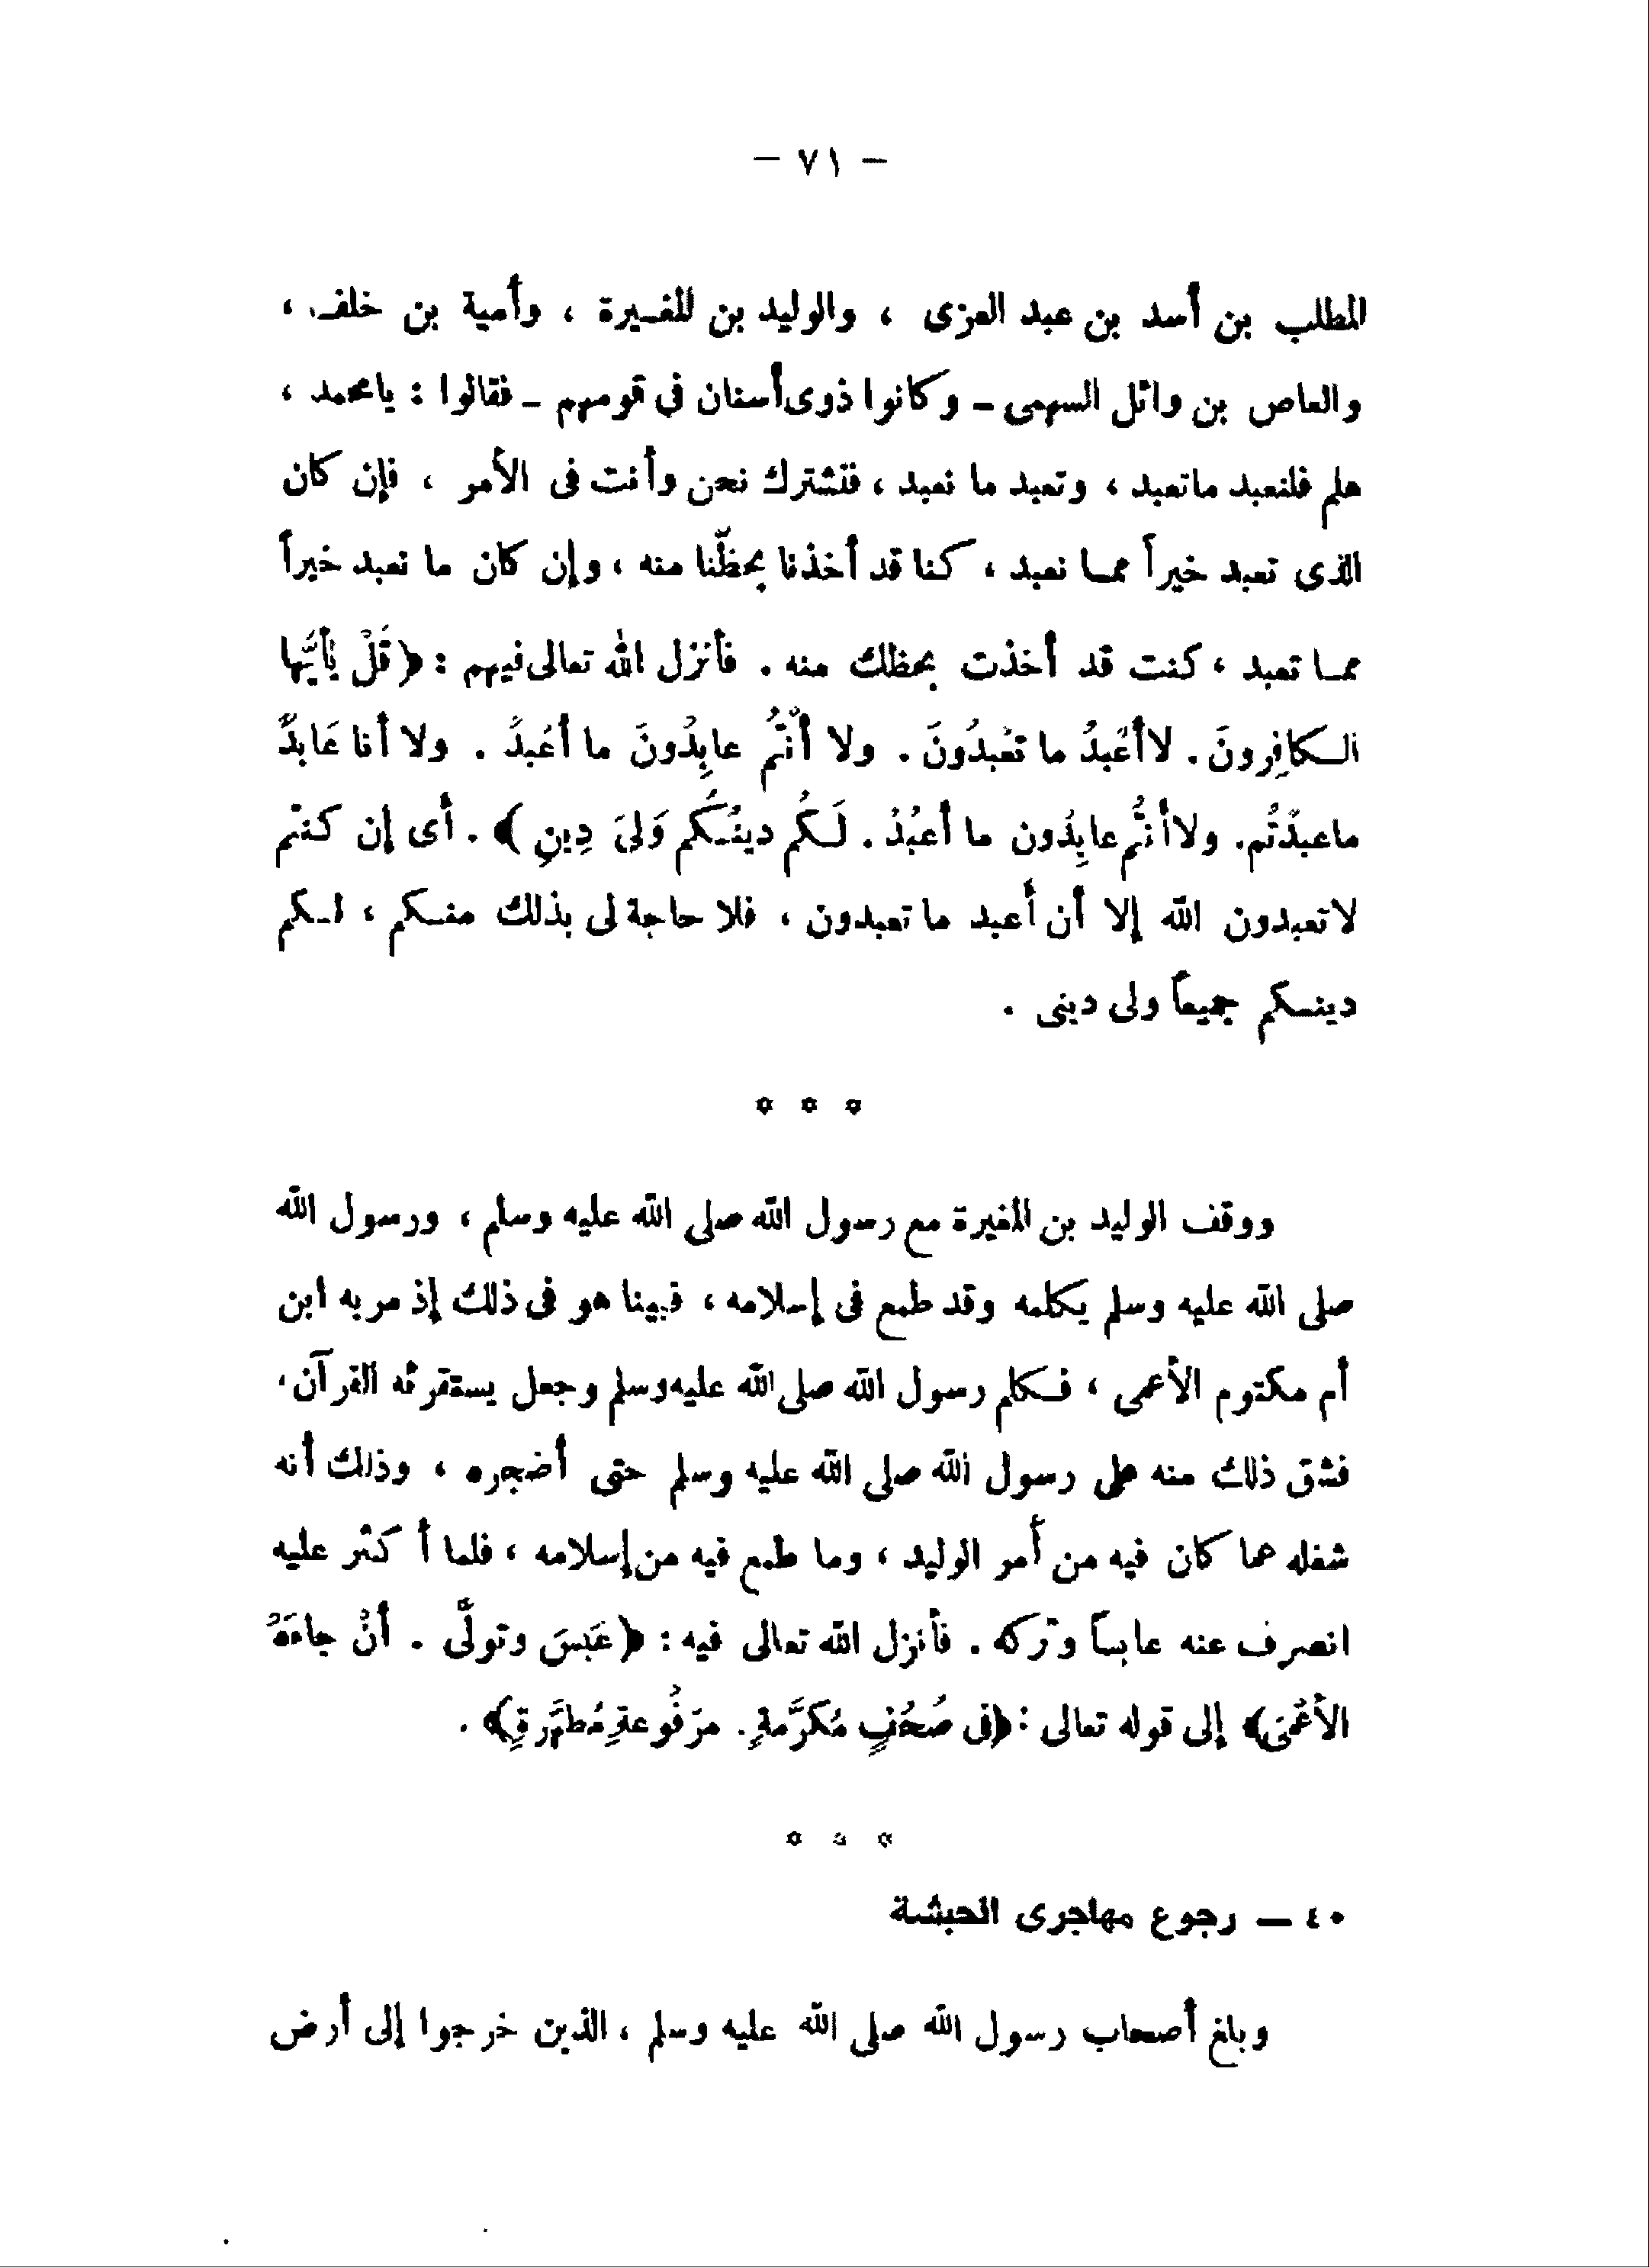 — ٧١ —
المطلب بن أسد بن عبد العزى ، والوليد بن المغيرة ، وأمية بن خلف ،
والعاص بن وائل السهمى – وكانوا ذوى أسنان فى قومهم – فقالوا : يا محمد ،
هلم فلنعبد ماتعبد ، وتعبد ما نعبد ، فنشترك نحن وأنت فى الأمر ، فإن كان
الذى تعبد خيراً مما نعبد ، كنا قد أخذنا بحظّنا منه ، وإن كان ما نعبد خيراً
مما تعبد ، كنت قد أخذت بحظك منه . فأنزل الله تعالى فيهم : ﴿ قُلْ يٰأيُّها
الكافِرونَ . لا أعْبدُ ما تعْبدُونَ . ولا أنْتُم عابِدُونَ ما أعْبدُ . ولا أنا عَابدٌ
ماعبدْتُم . ولا أنتُم عابِدُون ما أعبُدُ . لَكُم دينُكُم وَلىَ دِينِ ﴾ . أى إن كنتم
لا تعبدون الله إلا أن أعبد ما تعبدون ، فلا حاجة لى بذلك منكم ، لكم
دينكم جميعاً ولى دينى .
* * *
ووقف الوليد بن المغيرة مع رسول الله صلى الله عليه وسلم ، ورسول الله
صلى الله عليه وسلم يكلمه وقد طمع فى إسلامه ، فبينا هو فى ذلك إذ مر به ابن
أم مكتوم الأعمى ، فكلم رسول الله صلى الله عليه وسلم وجعل يستقرئه القرآن ،
فشق ذلك منه على رسول الله صلى الله عليه وسلم حتى أضجره ، وذلك أنه
شغله عما كان فيه من أمر الوليد ، وما طمع فيه من إسلامه ، فلما أكثر عليه
انصرف عنه عابساً وتركه . فأنزل الله تعالى فيه : ﴿ عَبَسَ وتولَّى . أنْ جاءَهُ
الأعْمَى ﴾ إلى قوله تعالى : ﴿ فى صُحُفٍ مُكرَّمةٍ . مرْفُوعةٍ مُطهَّرةٍ ﴾ .
* * *
٤٠ — رجوع مهاجرى الحبشة
وبلغ أصحاب رسول الله صلى الله عليه وسلم ، الذين خرجوا إلى أرض